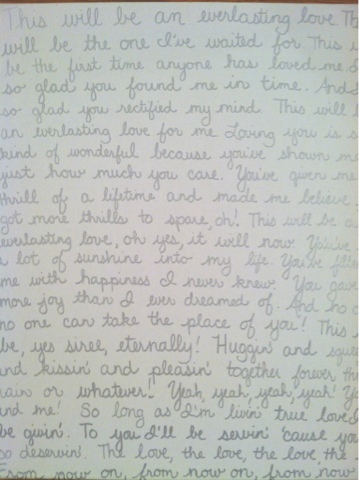 This will be an everlasting love Th
will be the one I've waited for This
be the first time anyone has loved me
so glad you found me in time. And
so glad you rectified my mind. This will
an everlasting love for me Loving you is s
kind of wonderful because you've shown me
just how much you care. You've given me
thrill of a lifetime and made me believe
got more thrills to spare, oh! This will be a
everlasting love, oh yes, it will now. You've
a lot of sunshine into my life. You've fille
me with happiness I never knew. You gave
more joy than I ever dreamed of. And no o
no one can take the place of you! This
be, yes siree, eternally! Huggin' and sque
and kissin' and pleasin' together forever th
rain or whatever! Yeah, yeah, yeah, yeah! Yo
and me! So long as I'm livin' true love I
be givin'. To you I'll be servin' 'cause you
so deservin'. The love, the love, the love the
From now on, from now on, from now